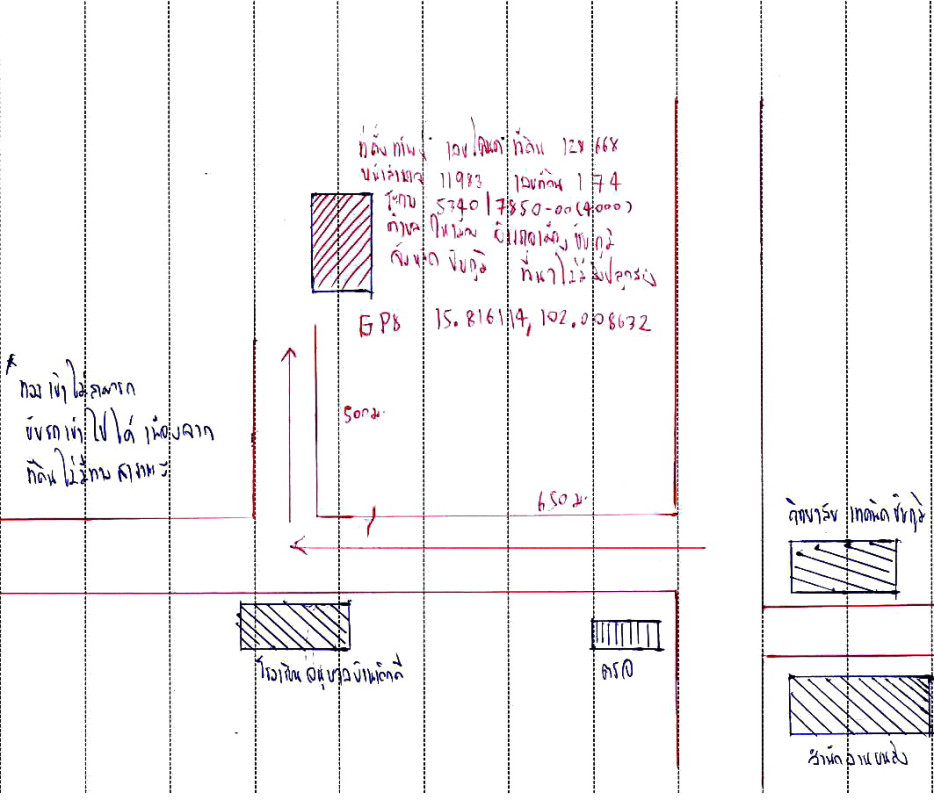 ที่ตั้งทรัพย์ เลขโฉนดที่ดิน 128668
หน้าสำรวจ 11983 เลขที่ดิน 174
ระวาง 5340 I 7850-00 (4000)
ตำบล ในเมือง อำเภอเมืองชัยภูมิ
จังหวัด ชัยภูมิ ที่นาไม่มีสิ่งปลูกสร้าง
GPS 15.816114, 102.008632
* ทางเข้าไม่สามารถ
ขับรถเข้าไปได้ เนื่องจาก
ที่ดินไม่มีทางสาธารณะ
500 ม.
650 ม.
วิทยาลัยเทคนิคชัยภูมิ
โรงเรียนอนุบาลบ้านเด็กดี
ตรอ
สำนักงานขนส่ง